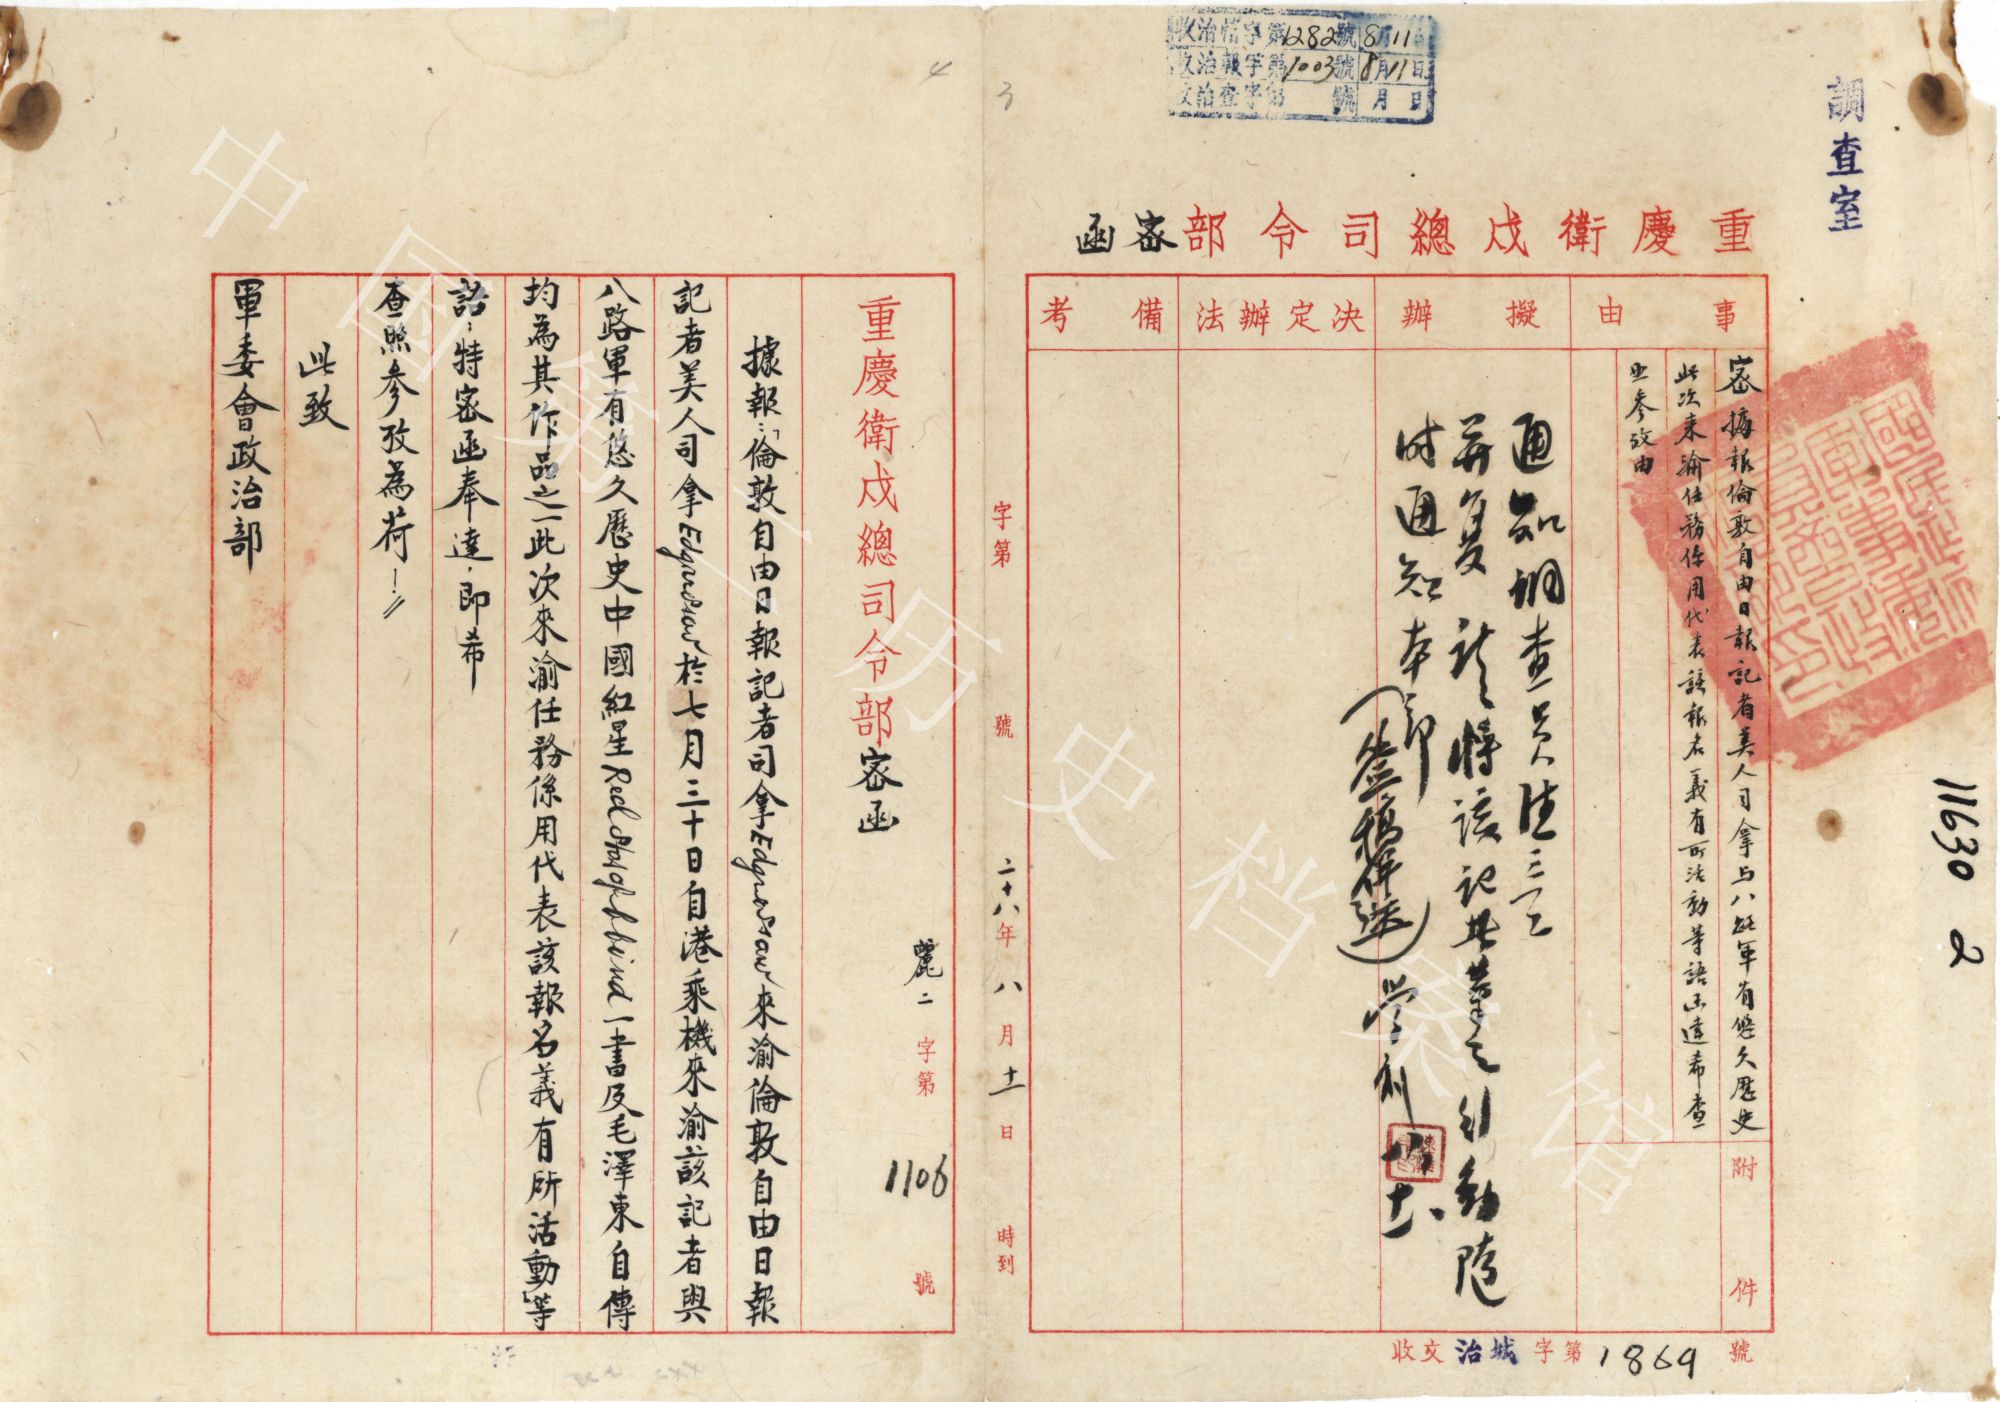 調查室
收治情字第1282號8月11日
收治報字第1003號8月11日
收治查字第 號 月 日
11630 2
重慶衛戍總司令部密函
事由
密 據報倫敦自由日報記者美人司拿与八路軍有悠久歷史
此次來渝任務係用代表該報名義有所活動等語函達希查
照參攷由
附件
擬辦
通知調查員
并复 將該記者 之行動随
时通知本部
(簽稿併送)
決定辦法
備考
收文治城字第1869號
字第 號
二十八年八月十一日 時到
3
4
重慶衛戍總司令部密函
麗二字第1106號
據報:「倫敦自由日報記者司拿Edgar Snow來渝倫敦自由日報
記者美人司拿Edgar Snow於七月三十日自港乘機來渝該記者與
八路軍有悠久歷史中國紅星Red Star of China一書及毛澤東自傳
均為其作品之一此次來渝任務係用代表該報名義有所活動」等
語:特密函奉達,即希
查照參攷為荷!
此致
軍委會政治部
中国第二历史档案馆